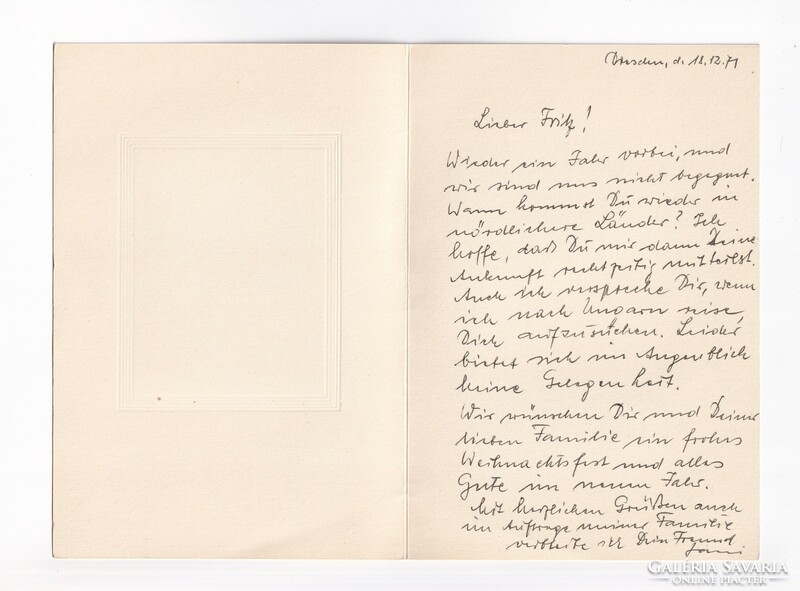 Dresden, d. 18.12.71
Lieber Fritz!
Wieder ein Jahr vorbei, und
wir sind uns nicht begegnet.
Wann kommst Du wieder in
nördlichere Länder? Ich
hoffe, daß Du mir dann Deine
Ankunft rechtzeitig mitteilst.
Auch ich verspreche Dir, wenn
ich nach Ungarn reise,
Dich aufzusuchen. Leider
bietet sich im Augenblick
keine Gelegenheit.
Wir wünschen Dir und Deiner
lieben Familie ein frohes
Weihnachtsfest und alles
Gute im neuen Jahr.
Mit herzlichen Grüßen auch
im Auftrage meiner Familie
verbleibe ich Dein Freund
GALÉRIA SAVARIA
ONLINE PIACTÉR